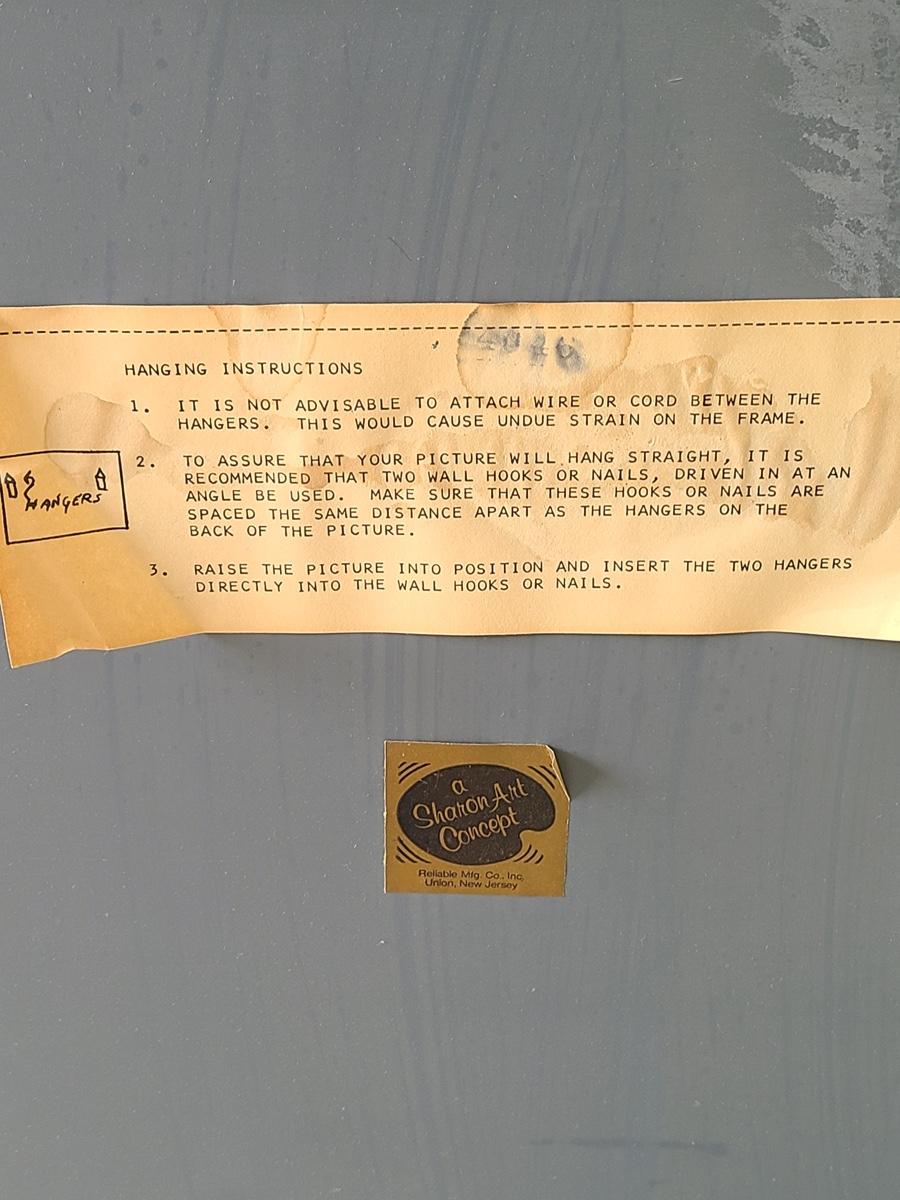 HANGING INSTRUCTIONS
1. IT IS NOT ADVISABLE TO ATTACH WIRE OR CORD BETWEEN THE
HANGERS. THIS WOULD CAUSE UNDUE STRAIN ON THE FRAME.
2. TO ASSURE THAT YOUR PICTURE WILL HANG STRAIGHT, IT IS
RECOMMENDED THAT TWO WALL HOOKS OR NAILS, DRIVEN IN AT AN
ANGLE BE USED. MAKE SURE THAT THESE HOOKS OR NAILS ARE
SPACED THE SAME DISTANCE APART AS THE HANGERS ON THE
BACK OF THE PICTURE.
3. RAISE THE PICTURE INTO POSITION AND INSERT THE TWO HANGERS
DIRECTLY INTO THE WALL HOOKS OR NAILS.
HANGERS
a
Sharon Art
Concept
Reliable Mfg. Co., Inc.
Union, New Jersey